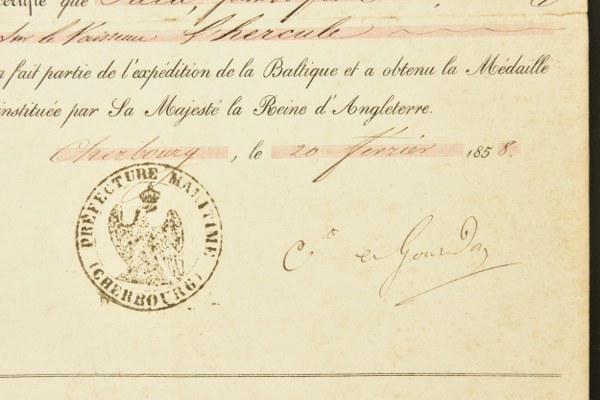 certifie que
Sur le Vaisseau l'hercule
a fait partie de l'expédition de la Baltique et a obtenu la Médaille
instituée par Sa Majesté la Reine d'Angleterre.
Cherbourg, le 20 février 1858.
PRÉFECTURE MARITIME
(CHERBOURG)
Cte de Gourdon